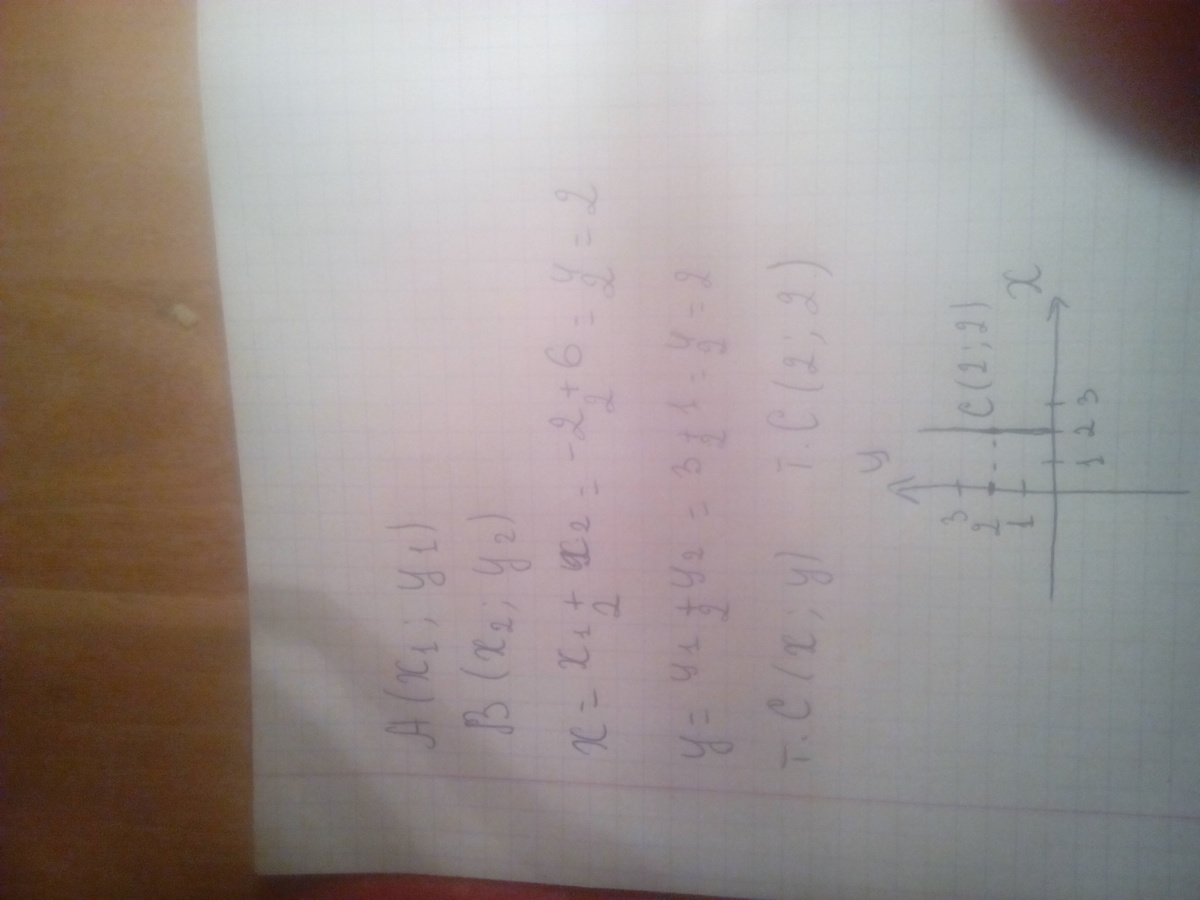 A (x₁; y₁)
B (x₂; y₂)
x = x₁ + x₂ / 2 = -2 + 6 / 2 = 4 / 2 = 2
y = y₁ + y₂ / 2 = 3 + 1 / 2 = 4 / 2 = 2
т. C (x; y) т. C (2; 2)
y
3
2 C (2; 2)
1
x
1 2 3